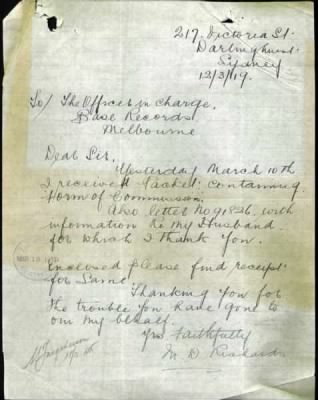 217 Victoria St.
Darlinghurst
Sydney
12/3/19.
To/ The Officer in Charge,
Base Records
Melbourne
Dear Sir,
Yesterday March 10th
I received Packet containing
Form of Commission.
Also letter No 91826 with
information re my Husband
for which I thank you.
Enclosed please find receipt
for Same
Thanking You for
the trouble You have gone to
on my behalf.
Yrs Faithfully
M. D. Richards